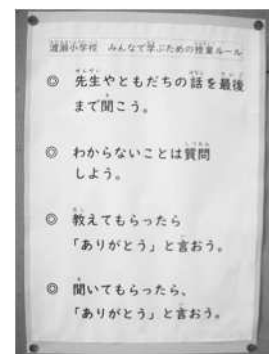 渡瀬小学校 みんなで学ぶための授業ルール
◎ 先生やともだちの話を最後
まで聞こう。
◎ わからないことは質問
しよう。
◎ 教えてもらったら
「ありがとう」と言おう。
◎ 聞いてもらったら、
「ありがとう」と言おう。